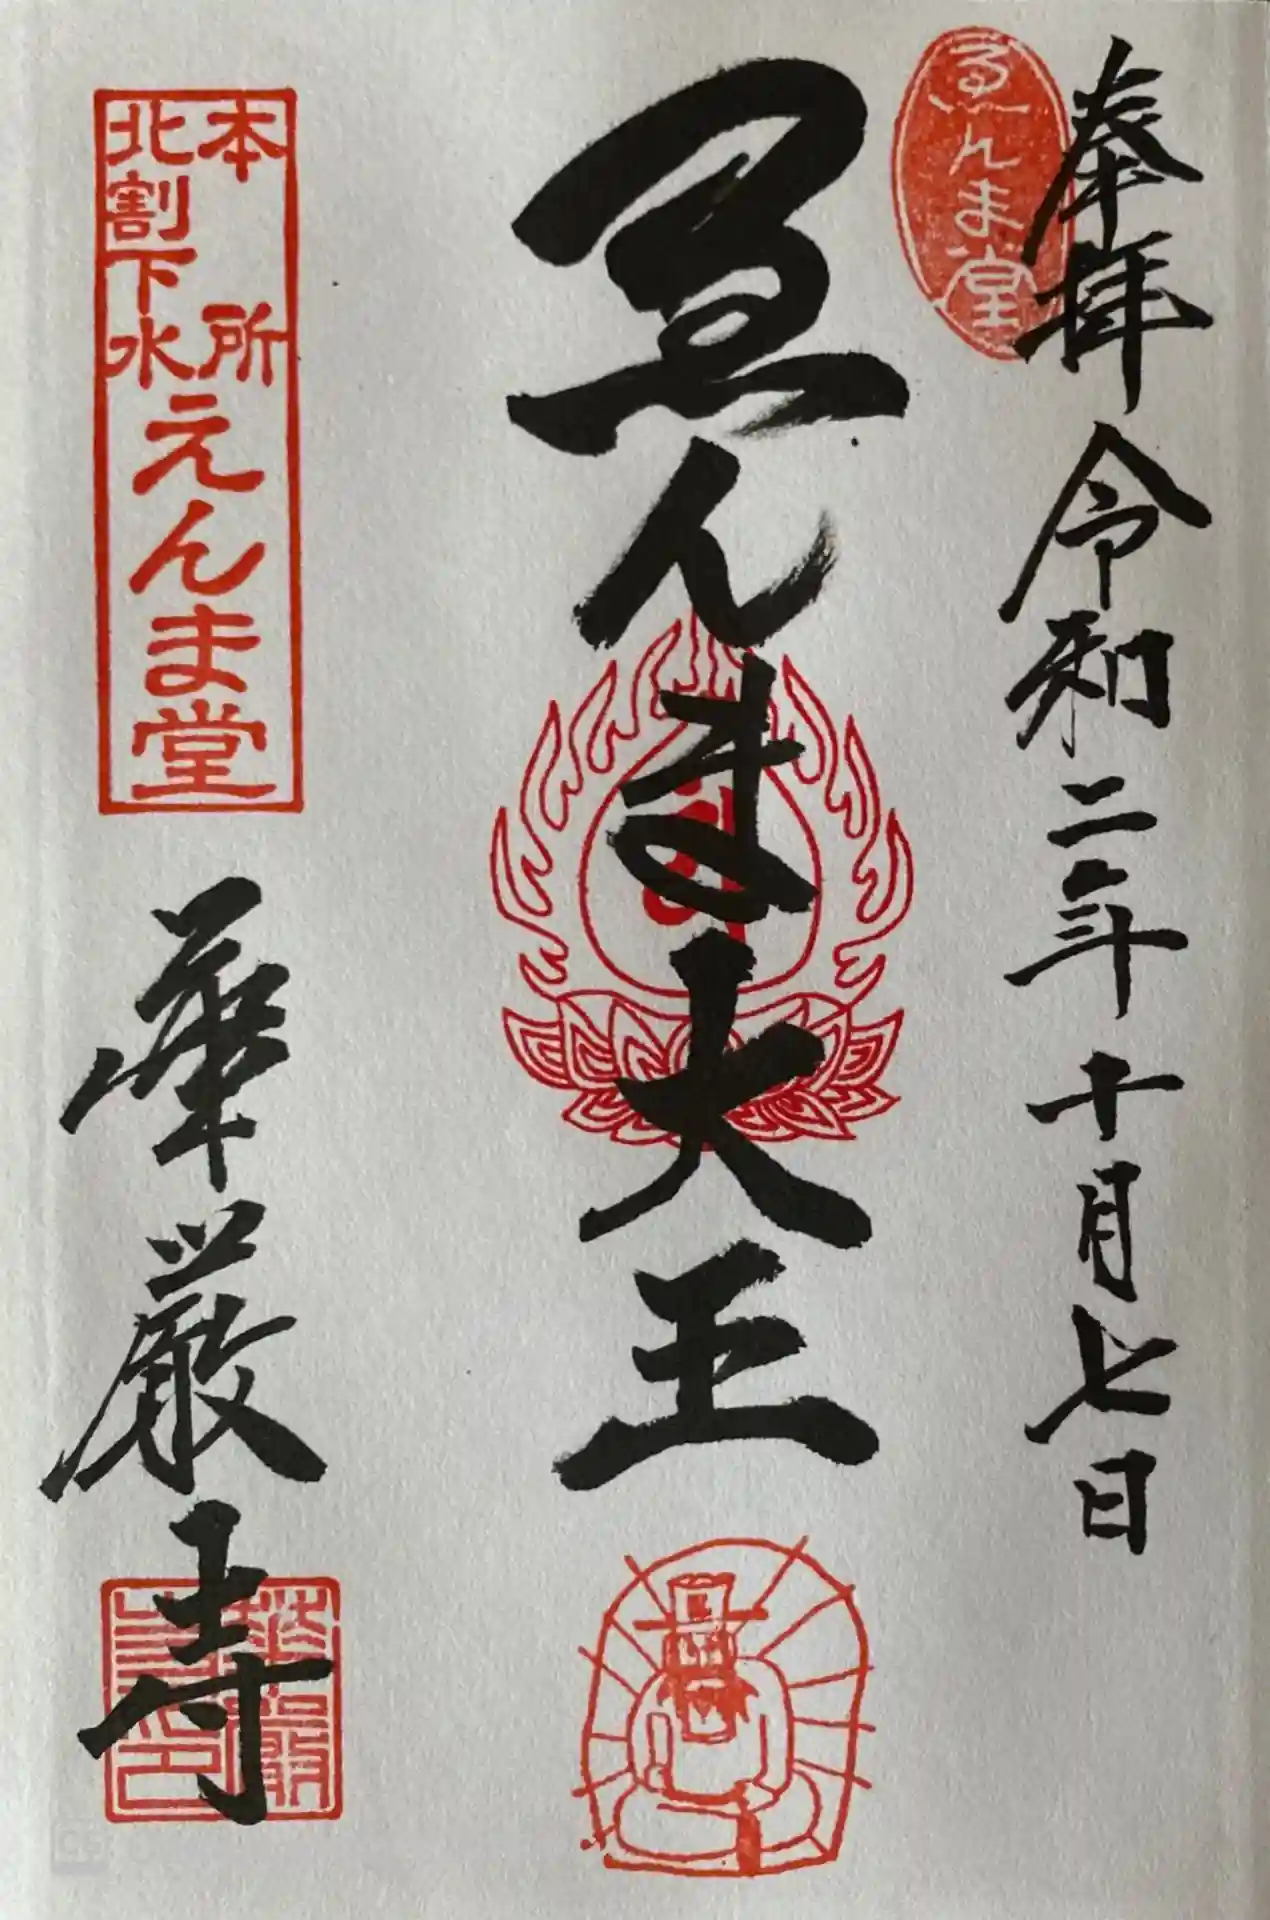 奉拝 令和二年 十月七日
ゑんま堂
ゑんま大王
本所
北割下水
えんま堂
華厳寺